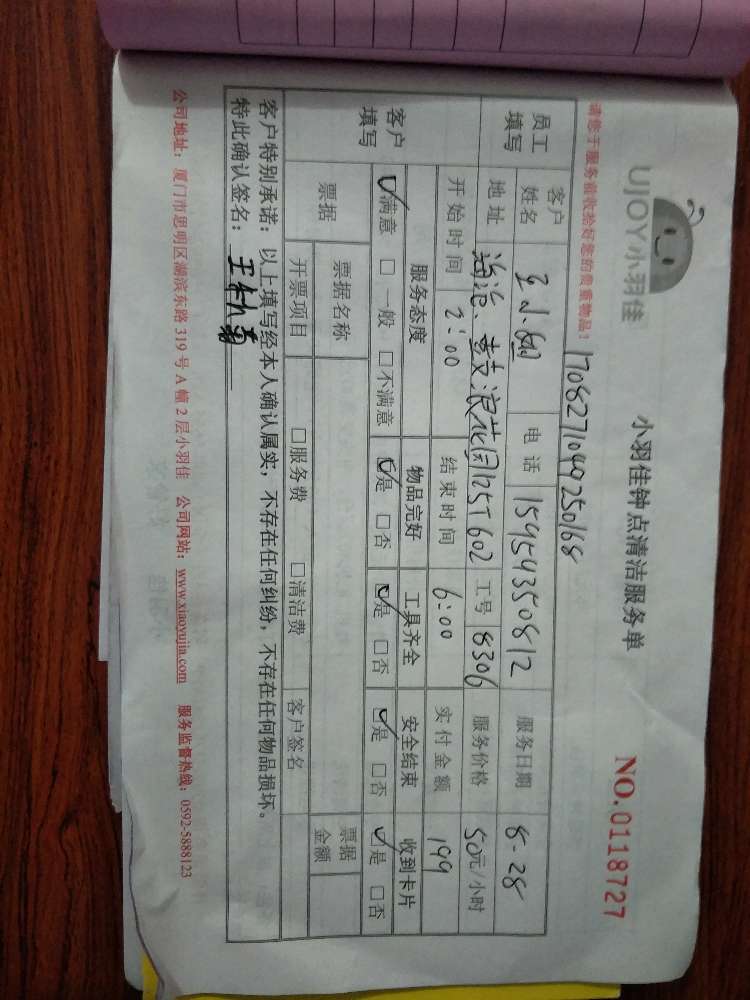 UJOY小羽佳
小羽佳钟点清洁服务单
NO.0118727
请您于服务前收拾好您的贵重物品！
1708271049250168
员工填写 客户姓名 王小姐 电话 15954350812 服务日期 8-28
地址 海沧、 浪花园125T602 工号 8306 服务价格 50元/小时
开始时间 2:00 结束时间 6:00 实付金额 199
客户填写 服务态度 物品完好 工具齐全 安全结束 收到卡片
☑满意 □一般 □不满意 ☑是 □否 ☑是 □否 ☑是 □否 ☑是 □否
票据 票据名称 票据金额
开票项目 □服务费 □清洁费 客户签名
客户特别承诺：以上填写经本人确认属实，不存在任何纠纷，不存在任何物品损坏。
特此确认签名：王
公司地址：厦门市思明区湖滨东路319号A幢2层小羽佳 公司网站：www.xiaoyujia.com 服务监督热线：0592-5888123